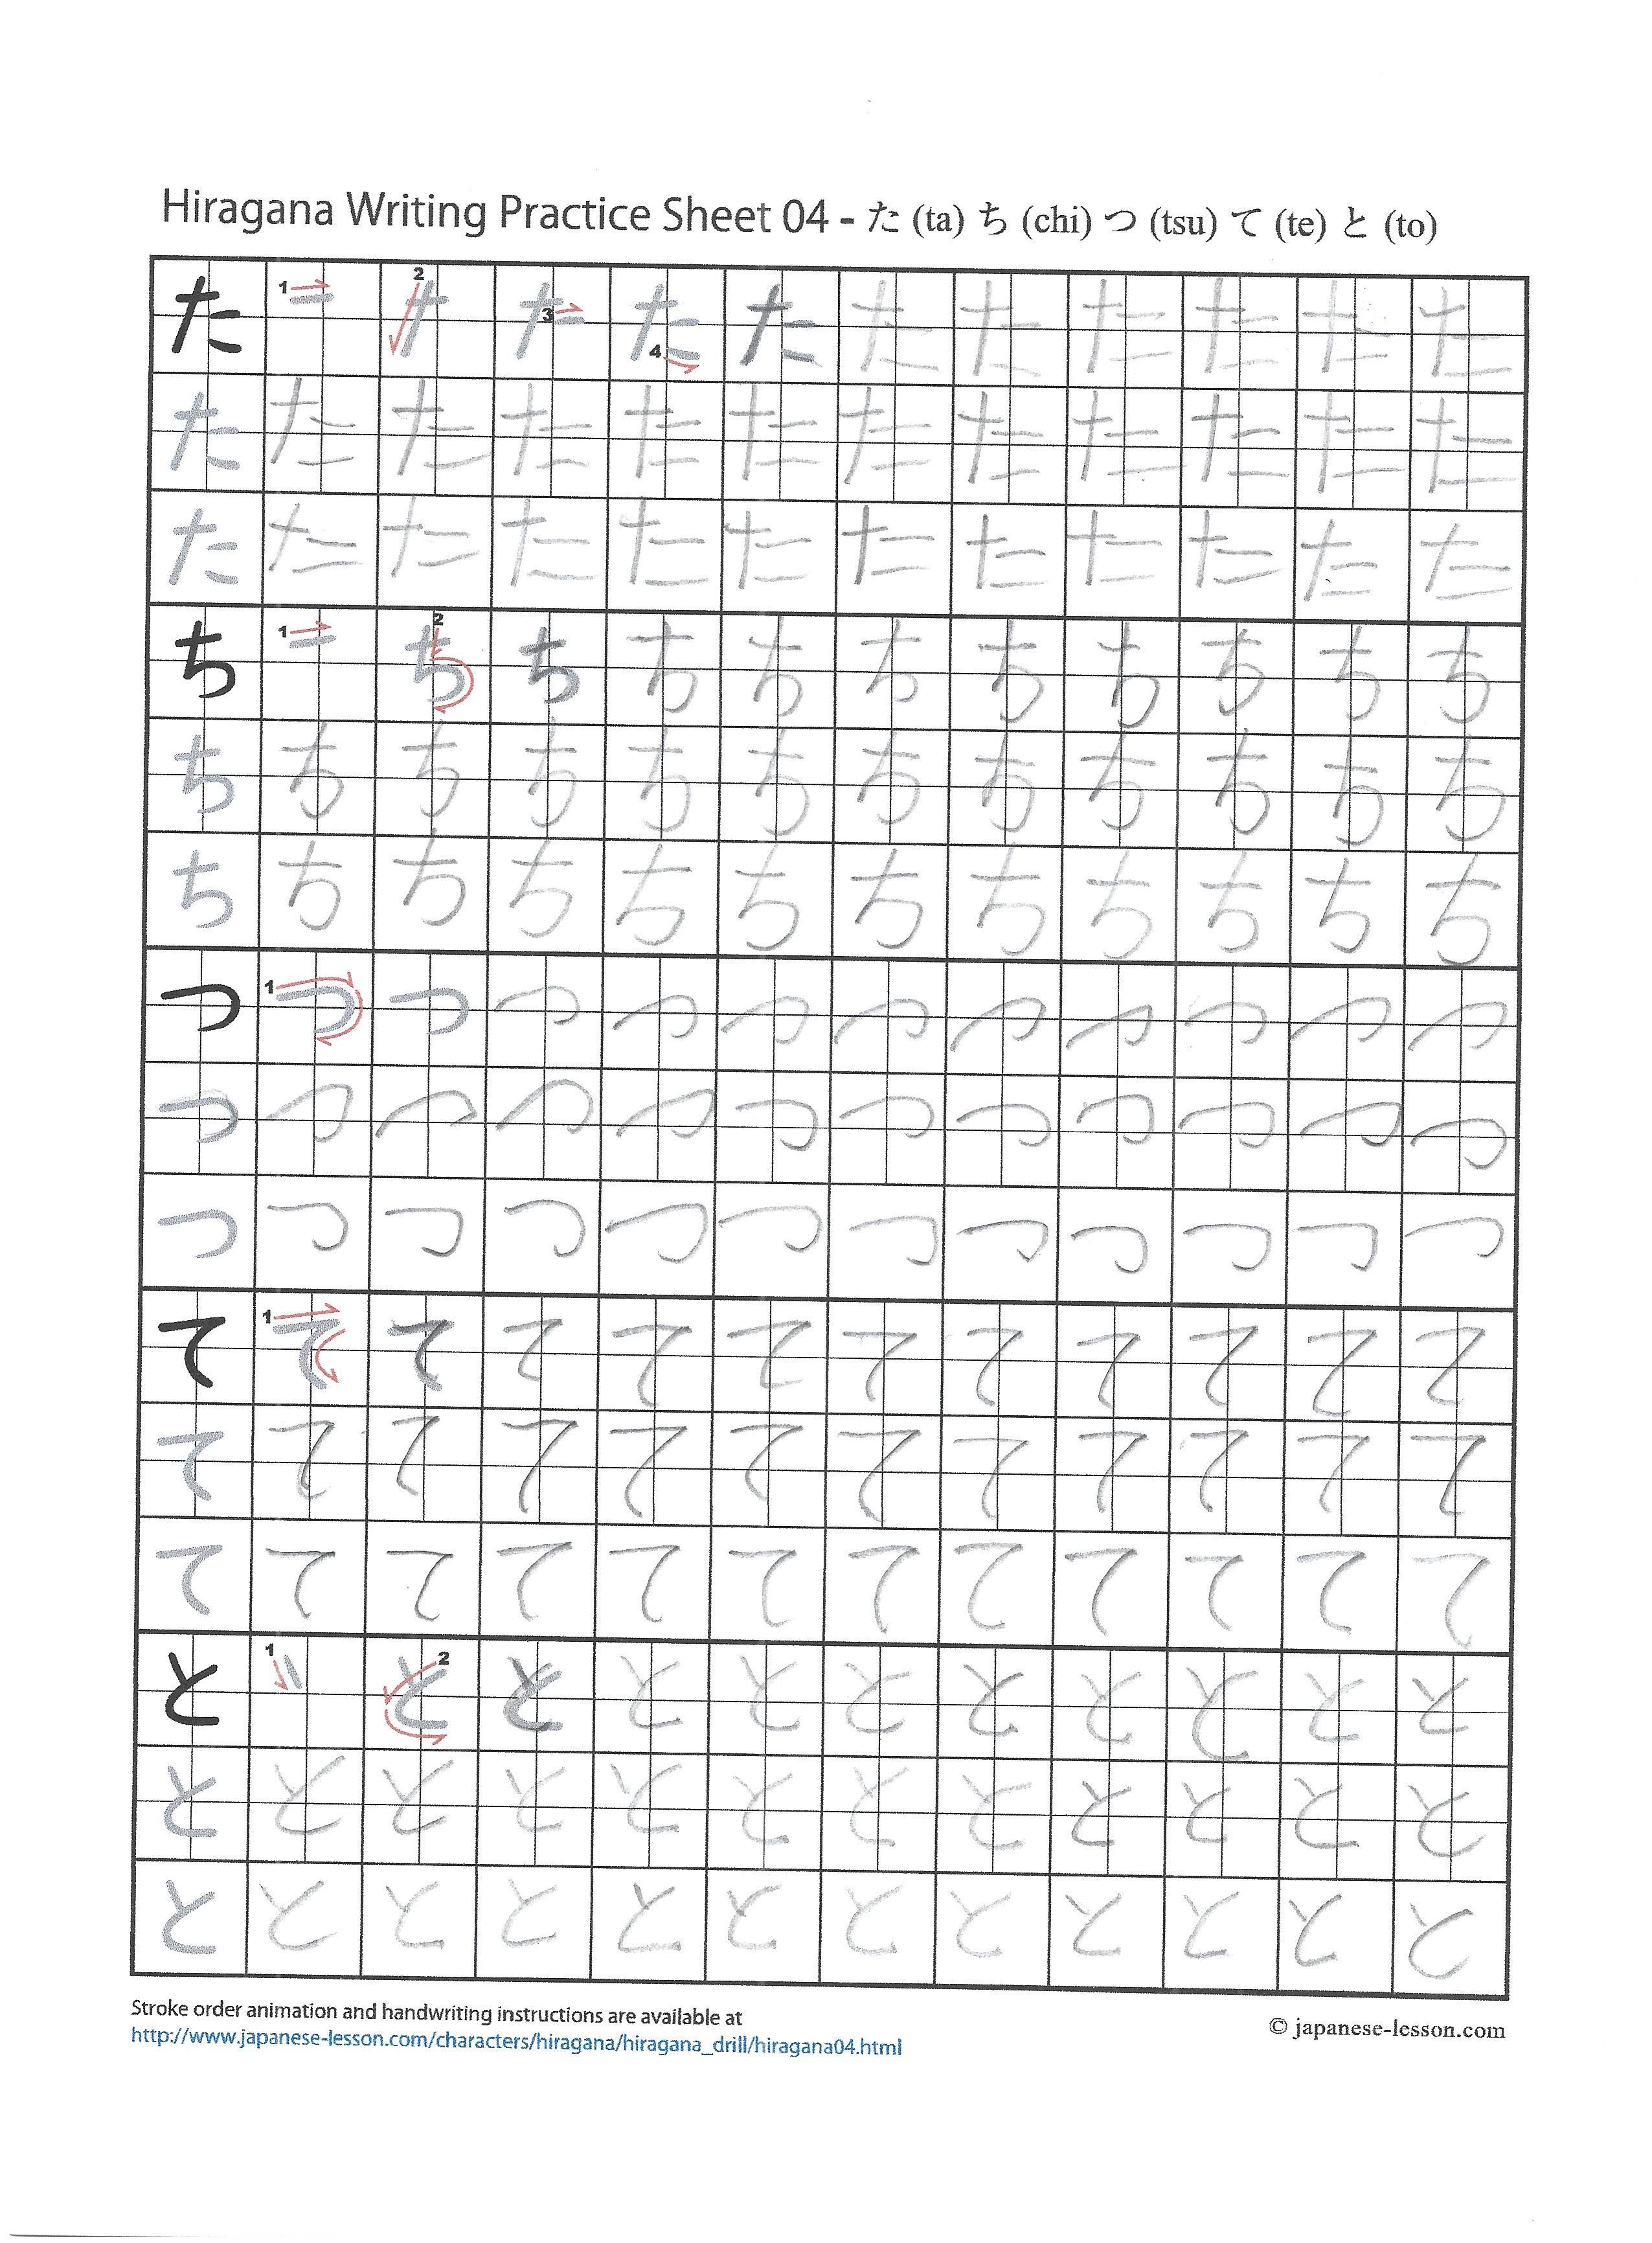 Hiragana Writing Practice Sheet 04 - た (ta) ち (chi) つ (tsu) て (te) と (to)
た 1 2 3 4 た た た た た た た た
た た た た た た た た た た た た
た た た た た た た た た た た た
ち 1 2 ち ち ち ち ち ち ち ち ち ち
ち ち ち ち ち ち ち ち ち ち ち ち
ち ち ち ち ち ち ち ち ち ち ち ち
つ 1 つ つ つ つ つ つ つ つ つ つ つ
つ つ つ つ つ つ つ つ つ つ つ つ
つ つ つ つ つ つ つ つ つ つ つ つ
て 1 て て て て て て て て て て て
て て て て て て て て て て て て
て て て て て て て て て て て て
と 1 2 と と と と と と と と と と
と と と と と と と と と と と と
と と と と と と と と と と と と
Stroke order animation and handwriting instructions are available at
http://www.japanese-lesson.com/characters/hiragana/hiragana_drill/hiragana04.html
© japanese-lesson.com